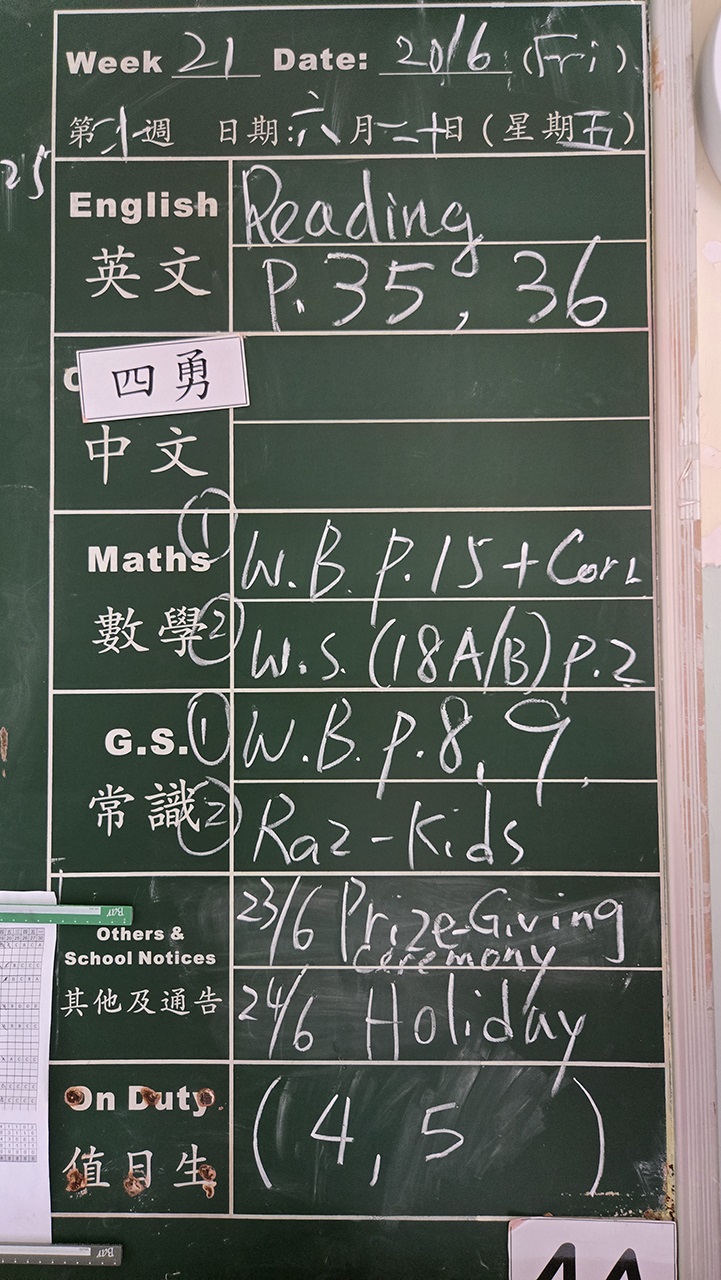 Week 21 Date: 20/6 (Fri)
第 週 日期:六月二十日(星期五)
25
English Reading
英文 P.35, 36
四勇
中文
Maths ① W.B. P.15 + Cor
數學 ② W.S. (18A/B) P.2
G.S. ① W.B. P.8, 9,
常識 ② Raz-Kids
Others &
School Notices
其他及通告
23/6 Prize-Giving
Ceremony
24/6 Holiday
On Duty
值日生
(4, 5)